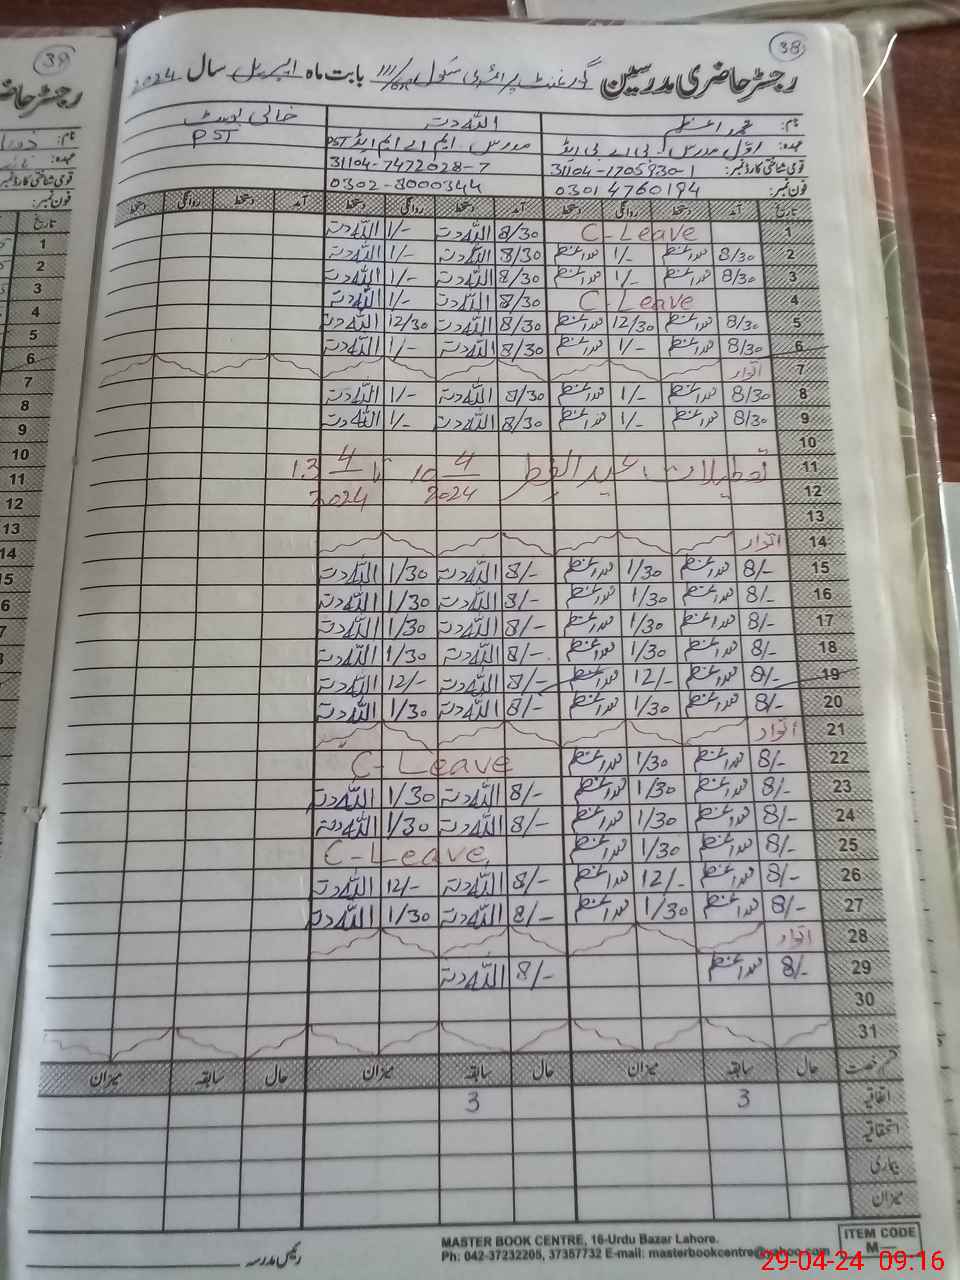 38
رجسٹر حاضری مدرسین گورنمنٹ پرائمری سکول 111/ بابت ماہ اپریل سال 2024
نام: محمد اعظم اللہ دتہ خالی پوسٹ
عہدہ: اول مدرس، بی اے بی ایڈ مدرس ایم اے ایم ایڈ PST PST
قومی شناختی کارڈ نمبر 31104-1705930-1 31104-7472028-7
فون نمبر: 0301 4760194 0302-8000344
تاریخ آمد دستخط روانگی دستخط آمد دستخط روانگی دستخط آمد دستخط روانگی دستخط
1 C-Leave 8/30 اللہ دتہ 1/- اللہ دتہ
2 8/30 محمد اعظم 1/- محمد اعظم 8/30 اللہ دتہ 1/- اللہ دتہ
3 8/30 محمد اعظم 1/- محمد اعظم 8/30 اللہ دتہ 1/- اللہ دتہ
4 C-Leave 8/30 اللہ دتہ 1/- اللہ دتہ
5 8/30 محمد اعظم 12/30 محمد اعظم 8/30 اللہ دتہ 12/30 اللہ دتہ
6 8/30 محمد اعظم 1/- محمد اعظم 8/30 اللہ دتہ 1/- اللہ دتہ
7 اتوار
8 8/30 محمد اعظم 1/- محمد اعظم 8/30 اللہ دتہ 1/- اللہ دتہ
9 8/30 محمد اعظم 1/- محمد اعظم 8/30 اللہ دتہ 1/- اللہ دتہ
10
11 تعطیلات عید الفطر 10 4/2024 تا 13 4/2024
12
13
14 اتوار
15 8/- محمد اعظم 1/30 محمد اعظم 8/- اللہ دتہ 1/30 اللہ دتہ
16 8/- محمد اعظم 1/30 محمد اعظم 8/- اللہ دتہ 1/30 اللہ دتہ
17 8/- محمد اعظم 1/30 محمد اعظم 8/- اللہ دتہ 1/30 اللہ دتہ
18 8/- محمد اعظم 1/30 محمد اعظم 8/- اللہ دتہ 1/30 اللہ دتہ
19 8/- محمد اعظم 12/- محمد اعظم 8/- اللہ دتہ 12/- اللہ دتہ
20 8/- محمد اعظم 1/30 محمد اعظم 8/- اللہ دتہ 1/30 اللہ دتہ
21 اتوار
22 8/- محمد اعظم 1/30 محمد اعظم C-Leave
23 8/- محمد اعظم 1/30 محمد اعظم 8/- اللہ دتہ 1/30 اللہ دتہ
24 8/- محمد اعظم 1/30 محمد اعظم 8/- اللہ دتہ 1/30 اللہ دتہ
25 8/- محمد اعظم 1/30 محمد اعظم C-Leave
26 8/- محمد اعظم 12/- محمد اعظم 8/- اللہ دتہ 12/- اللہ دتہ
27 8/- محمد اعظم 1/30 محمد اعظم 8/- اللہ دتہ 1/30 اللہ دتہ
28 اتوار
29 8/- محمد اعظم 8/- اللہ دتہ
30
31
قسم رخصت حال سابقہ میزان حال سابقہ میزان حال سابقہ میزان
اتفاقیہ 3 3
استحقاقیہ
بیماری
میزان
رئیس مدرسہ
MASTER BOOK CENTRE, 16-Urdu Bazar Lahore.
Ph: 042-37232205, 37357732 E-mail: masterbookcentre@yahoo.com
ITEM CODE
M—
29-04-24 09:16